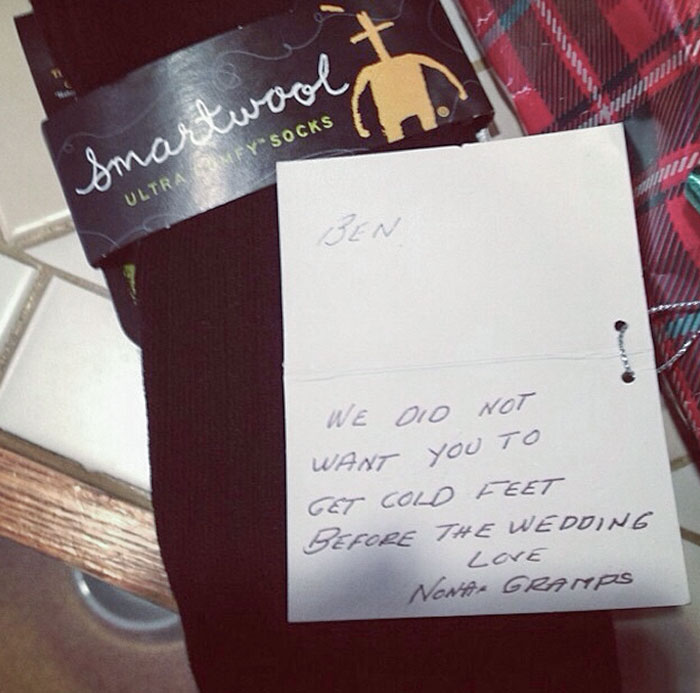 smartwool
ULTRA COMFY™ SOCKS
BEN
WE DID NOT
WANT YOU TO
GET COLD FEET
BEFORE THE WEDDING
LOVE
NONA & GRAMPS